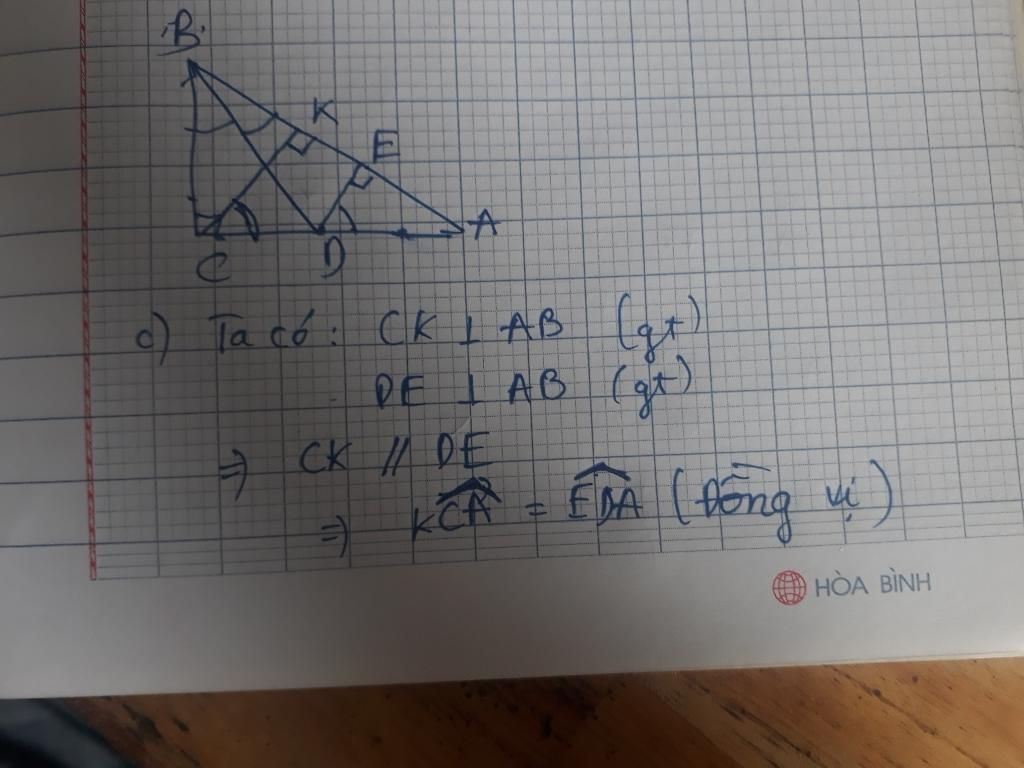 B
K
E
A
C
D
c) Ta có: CK ⊥ AB (gt)
DE ⊥ AB (gt)
⇒ CK // DE
⇒ KĈA = ED̂A (Đồng vị)
HÒA BÌNH